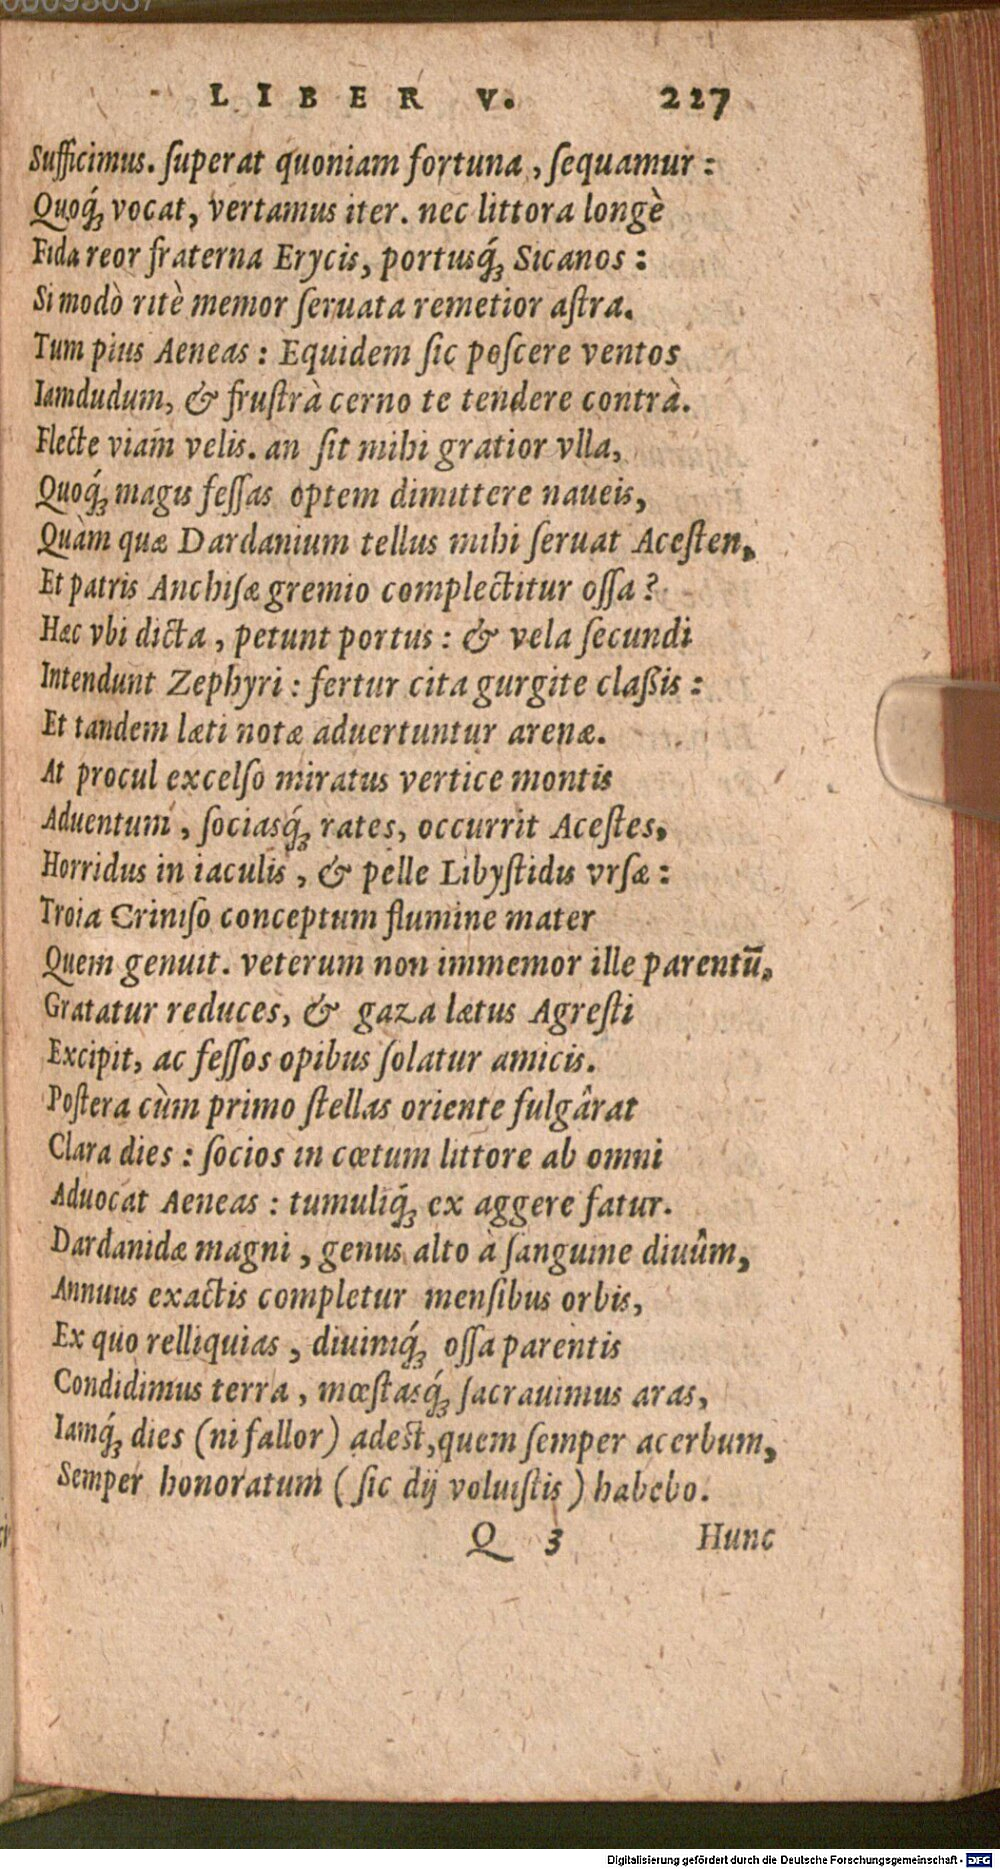 LIBER V. 227
Sufficimus. ſuperat quoniam fortuna, ſequamur:
Quoq́ꝫ vocat, vertamus iter. nec littora longè
Fida reor fraterna Erycis, portusq́ꝫ Sicanos:
Si modò ritè memor ſeruata remetior aſtra.
Tum pius Aeneas: Equidem ſic poſcere ventos
Iamdudum, & fruſtrà cerno te tendere contrà.
Flecte viam velis. an ſit mihi gratior vlla,
Quoq́ꝫ magis feſſas optem dimittere naueis,
Quàm quæ Dardanium tellus mihi ſeruat Aceſten,
Et patris Anchiſæ gremio complectitur oſſa?
Hæc vbi dicta, petunt portus: & vela ſecundi
Intendunt Zephyri: fertur cita gurgite claßis:
Et tandem læti notæ aduertuntur arenæ.
At procul excelſo miratus vertice montis
Aduentum, ſociasq́ꝫ rates, occurrit Aceſtes,
Horridus in iaculis, & pelle Libyſtidis vrſæ:
Troia Criniſo conceptum flumine mater
Quem genuit. veterum non immemor ille parentū,
Gratatur reduces, & gaza lætus Agreſti
Excipit, ac feſſos opibus ſolatur amicis.
Poſtera cùm primo ſtellas oriente fulgârat
Clara dies: ſocios in cœtum littore ab omni
Aduocat Aeneas: tumuliq́ꝫ ex aggere fatur.
Dardanidæ magni, genus alto à ſanguine diuûm,
Annuus exactis completur menſibus orbis,
Ex quo relliquias, diuiniq́ꝫ oſſa parentis
Condidimus terra, mœſtasq́ꝫ ſacrauimus aras,
Iamq́ꝫ dies (ni fallor) adest, quem ſemper acerbum,
Semper honoratum (ſic dij voluiſtis) habebo.
Q 3 Hunc
Digitalisierung gefördert durch die Deutsche Forschungsgemeinschaft - DFG